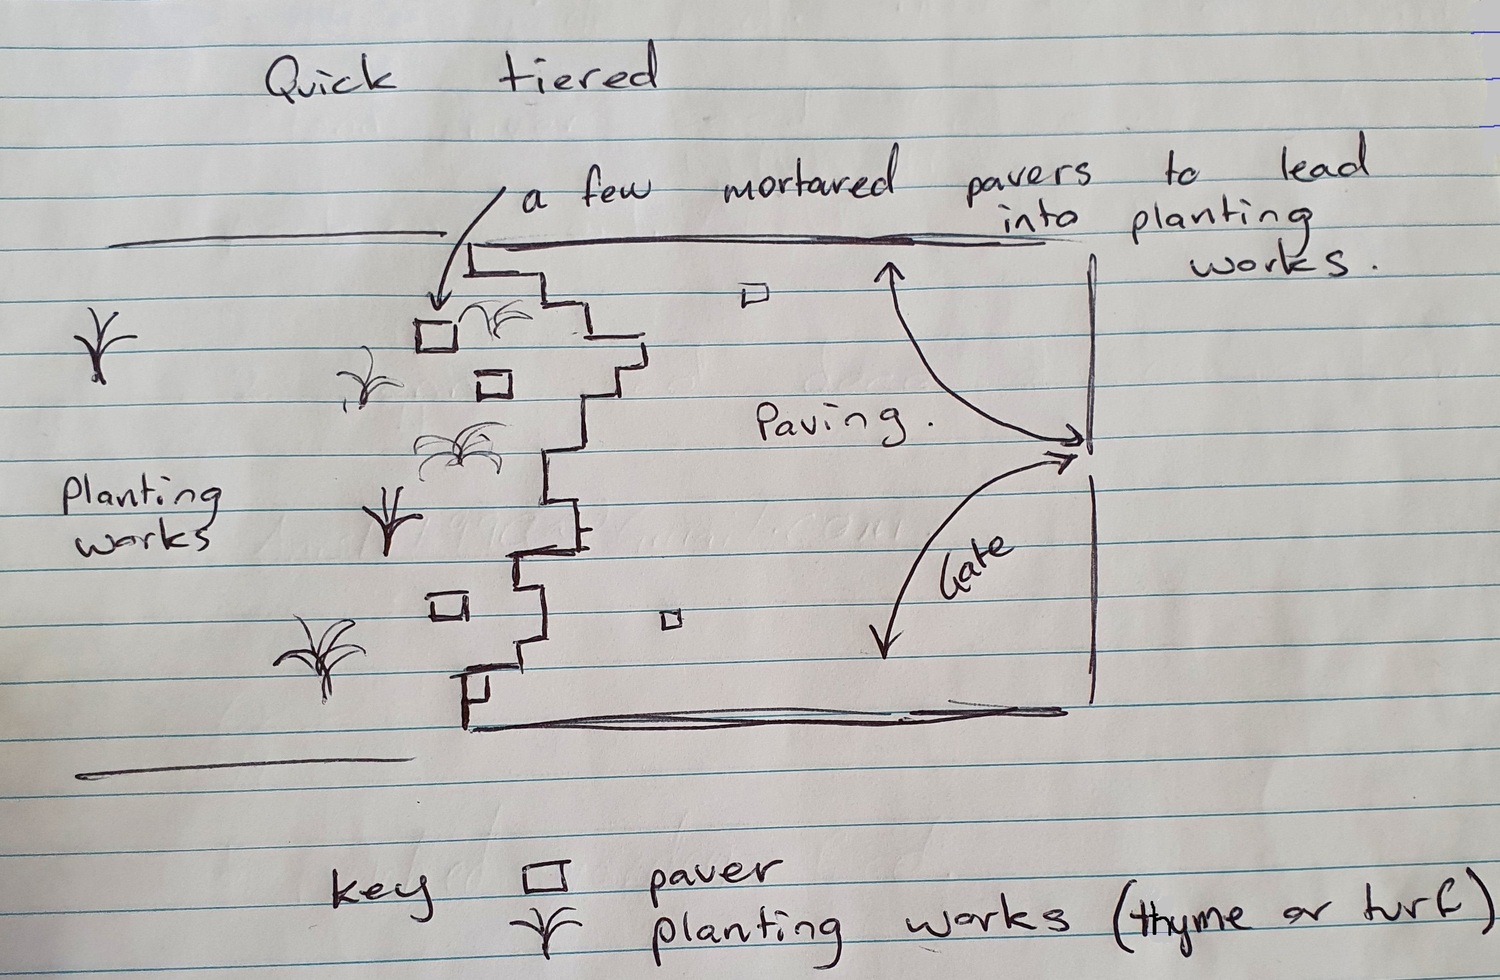 Quick tiered
a few mortared pavers to lead
into planting
works.
Paving.
Planting
works
Gate
key paver
planting works (thyme or turf)